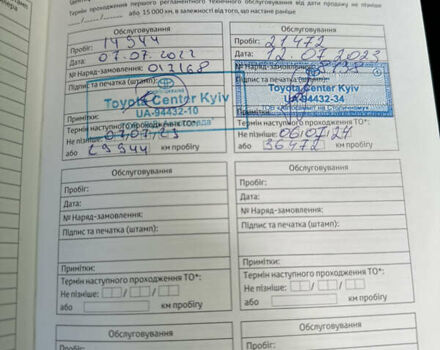 Термін проходження першого регламентного технічного обслуговування від дати продажу не пізніше
або 15 000 км, в залежності від того, що настане раніше
Обслуговування
Пробіг: 14944
Дата: 07.07.2022
№ Наряд-замовлення: 017168
Підпис та печатка (штамп):
Toyota Center Kyiv
UA-94432-10
Примітки:
Термін наступного проходження
Не пізніше: 07/07/23
або 29944 км пробігу
Обслуговування
Пробіг: 21472
Дата: 12.07.2023
№ Наряд-замовлення:
Підпис та печатка
Toyota Center Kyiv
UA-94432-34
Примітки:
Термін наступного проходження ТО*:
Не пізніше: 06/07/24
або 36472 км пробігу
Обслуговування
Пробіг:
Дата:
№ Наряд-замовлення:
Підпис та печатка (штамп):
Примітки:
Термін наступного проходження ТО*:
Не пізніше: / /
або км пробігу
Обслуговування
Пробіг:
Дата:
№ Наряд-замовлення:
Підпис та печатка (штамп):
Примітки:
Термін наступного проходження ТО*:
Не пізніше: / /
або км пробігу
Обслуговування
Пробіг:
Обслуговування